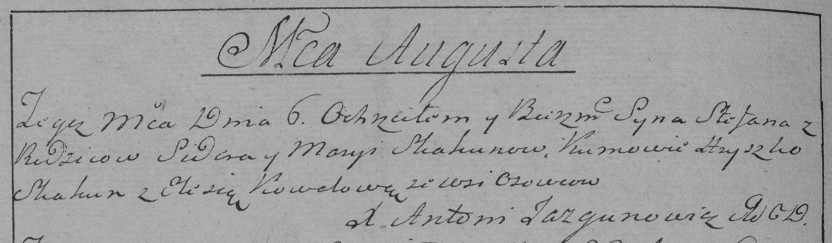 Mca Augusta
Tegoż Mca Dnia 6. Ochrzciłem y Bierzmc Syna Stefana z
Rodzicow Sidora y Maryi Skakunow, Kumowie Hryszko
Skakun z Elesią Kowalową ze wsi Osowcow
X Antoni Jazgunowicz